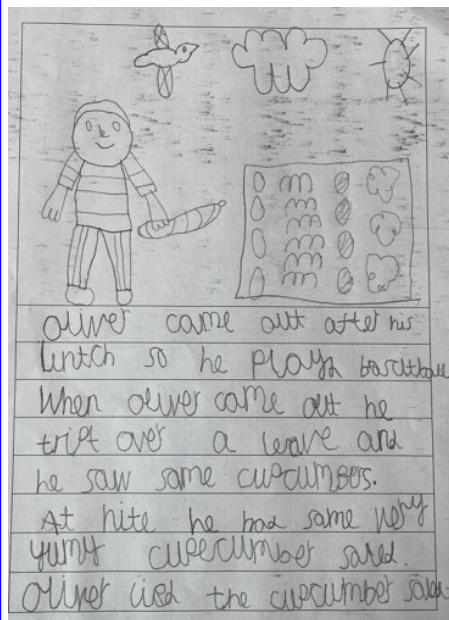 oliver came outt after his
luntch so he playd bascitball
When oliver came out he
tript over a leave and
he saw some cucumbers.
At nite he had some very
yumy cucecumber saled.
Oliver licd the cucecumber saled.